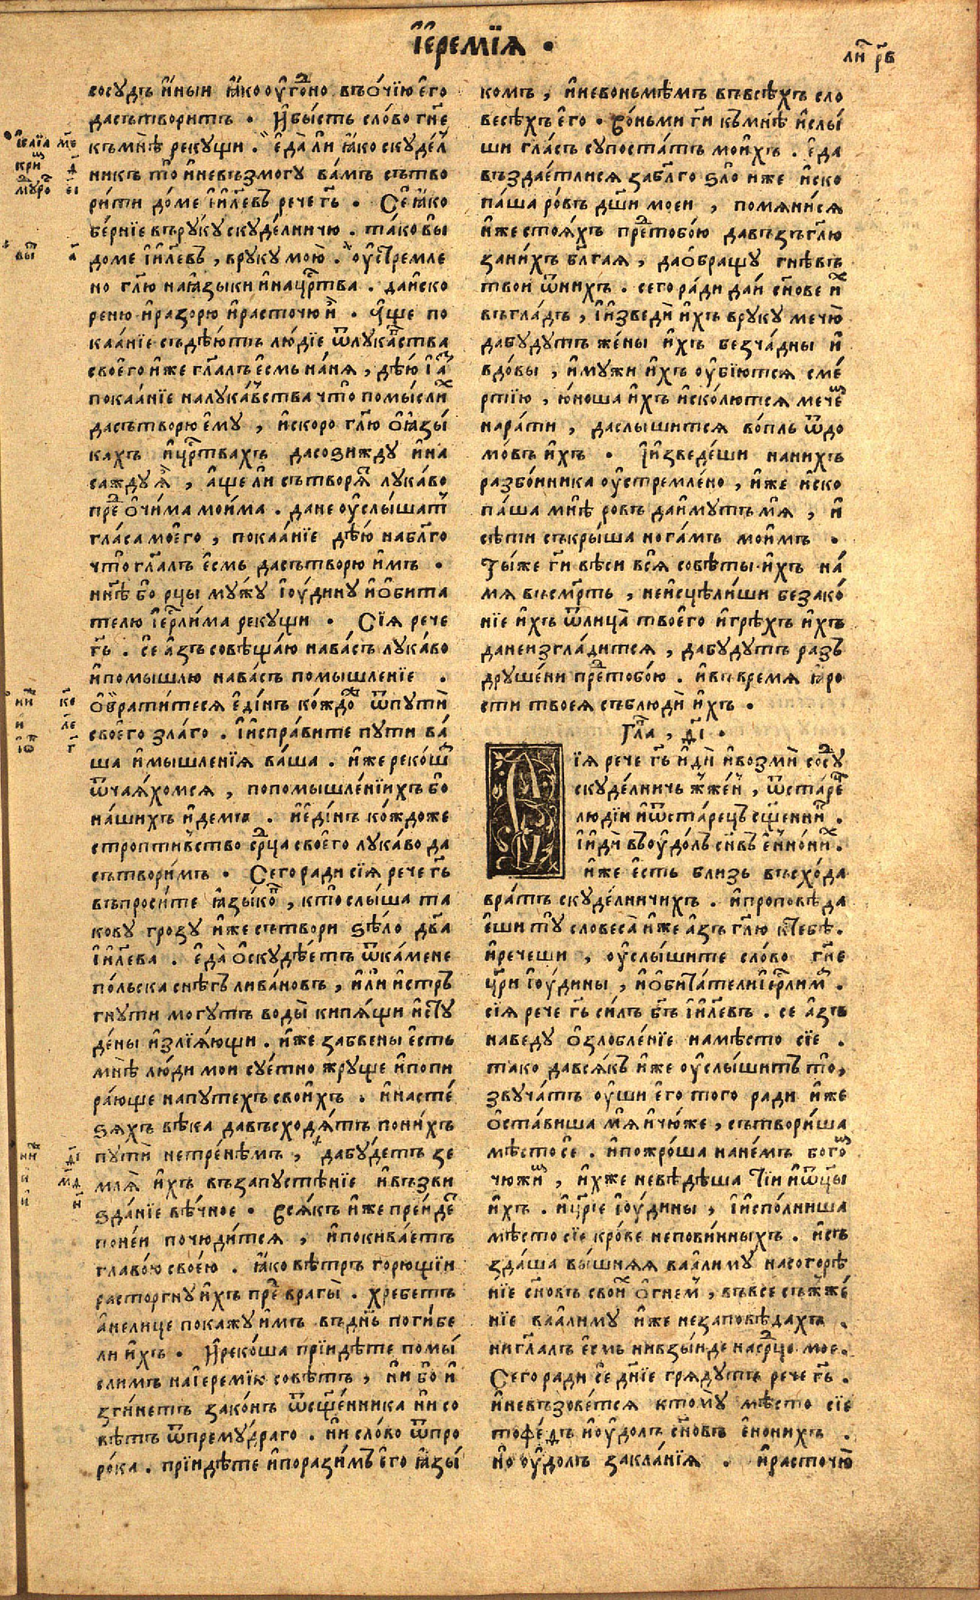 І҆еремі́ѧ .
ли҃ рв
сосу́дъ и҆ны́и ꙗ҆́ко оу҆го́дно въ ѻ҆чі́ю є҆го̀
да сътвори́тъ . И҆ бы́сть сло́во гн҃е
къ мнѣ̀ рекущи . є҆да̀ ли ꙗ҆́ко скуде́л
никъ то̀ и҆ невъзмогу̀ ва́мъ сътво
ри́ти до́ме і҆и҃левъ рече гь҃ . Се ꙗ҆́ко
бе́рніе въ руку скуде́лничю . та́ко вы̀
доме і҆и҃левъ , в руку мою̀ . оу҆стремле
но гл҃ю на ꙗ҆зы́ки и҆ на ца҃рства . да и҆ско
реню̀ и҆ разорю̀ и҆ расточю̀ и҆̀ . А҆́ще по
каа́ніе съдѣ́ютъ лю́діе ѿ лука́вства
своего̀ и҆́же гл҃алъ є҆́смь на нѧ̀ , дѣ́ю и҆ а҆́зъ
покаа́ніе на лука́вства что̀ помы́слихъ
да сътворю̀ є҆му̀ , и҆ скоро гл҃ю ѻ҆ ꙗ҆зы́
кахъ и҆ цр҃твахъ да созижду и҆ на
сажду ѧ҆̀ , а҆́ще ли сътворѧ́тъ лука́во
пре́д ѻ҆чи́ма мои́ма . да не оу҆слы́шатъ
гла́са моего̀ , покаа́ніе дѣ́ю на бл҃го
что̀ гл҃алъ є҆́смь да сътворю̀ и҆́мъ .
нн҃ѣ бо рцы̀ му́жу і҆ю́дину и҆ ѻ҆бита
телю і҆ерⷭ҇ли́ма рекущи . Сїѧ̀ рече
гь҃ . се а҆́зъ совѣща́ю на ва́съ лука́во
и҆ помышлю на ва́съ помышле́ніе .
ѻ҆брати́тесѧ є҆ди́нъ ко́ждо ѿ путѝ
своего̀ зла́го . и҆ и҆спра́вите путѝ ва́
ша и҆ мышле́ніѧ ва́ша . и҆́же реко́ша
ѿча́ѧхомсѧ , по помышле́ніихъ бо
на́шихъ и҆де́мъ . и҆ є҆ди́нъ ко́ждоже
стропти́вство срⷣца своего̀ лука́во да
сътвори́мъ . Сего ра́ди сїѧ̀ рече гь҃
въпроси́те ꙗ҆зы́ковъ , кто̀ слы́ша та
кову̀ грозу̀ и҆́же сътвори ѕѣло̀ дв҃а
і҆и҃лева . є҆да̀ ѻ҆скудѣ́етъ ѿ ка́мене
по́льска снѣ́гъ лива́новъ , и҆лѝ и҆стръ
гнути могутъ во́ды кипѧ́щи и҆ сту
де́ны и҆злїѧ́ющи . и҆́же забве́ны є҆́сть
мнѣ̀ лю́ди мои суе́тно жру́ще и҆ попи
ра́юще на путехъ свои́хъ . и҆ на сте́
ѕѧ́хъ вѣ́ка да въсходѧ́тъ по ни́хъ
путѝ нетре́нѣмъ , да бу́детъ зе
млѧ̀ и҆́хъ въ запусте́ніе и҆ въ зви
зда́ніе вѣ́чное . Всѧ́къ и҆́же пре́иде
по не́и почюди́тсѧ , и҆ покива́етъ
главо́ю своею . ꙗ҆́ко вѣ́тръ горю́щіи
расторгну и҆́хъ пре́д врагѝ . хребетъ
а҆ не лице покажу и҆́мъ въ дн҃ь поги́бе
ли и҆́хъ . И҆ реко́ша пріидѣ́те помы́
слимъ на і҆еремі́ю совѣ́тъ , ни́ бо и҆
зги́нетъ зако́нъ ѿ сщ҃е́нника ни со
вѣ́тъ ѿ прему́драго . ни сло́во ѿ про
ро́ка . пріидѣ́те и҆ порази́мъ є҆го̀ ꙗ҆зы́
комъ , и҆ невоньмѣ́мъ въ всѣ́хъ сло
весѣ́хъ є҆го̀ . Во́ньми ги҃ къ мнѣ̀ и҆ слы́
ши гла́съ супоста́тъ мои́хъ . є҆да̀
въздае́тлисѧ за бл҃го ѕло̀ и҆́же и҆ско
па́ша ро́въ дш҃и моеи , помѧни́сѧ
и҆́же стоѧ́хъ пре́д тобо́ю да възъгл҃ю
за ни́хъ бл҃гаѧ , да ѻ҆бращу̀ гнѣ́въ
твои ѿ ни́хъ . сего ра́ди да́и сн҃ове и҆́х
въ гла́дъ , и҆ и҆зведѝ и҆́хъ в руку мечю̀
да бу́дутъ же́ны и҆́хъ безча́дны и҆
вдо́вы , и҆ му́жи и҆́хъ оу҆бію́тсѧ сме́
ртію , ю҆́ноша и҆́хъ и҆ско́лютсѧ мече́м
на ра́ти , да слы́шитсѧ во́пль ѿ до
мо́въ и҆́хъ . И҆ и҆зведе́ши на ни́хъ
разбо́иника оу҆стремле́но , и҆́же и҆ско
па́ша мнѣ̀ ро́въ да и҆́мутъ мѧ̀ , и҆
сѣ́ти съкры́ша нога́мъ мои́мъ .
Ты́же ги҃ вѣ́си всѧ̀ совѣ́ты и҆́хъ на́
мѧ въ см҃рть , не и҆сцѣли́ши безако́
ніе и҆́хъ ѿ лица̀ твоего̀ и҆ грѣ́хъ и҆́хъ
да не и҆згла́дитсѧ , да бу́дутъ разъ
друше́ни пре́д тобо́ю . и҆ въ времѧ ꙗ҆ро
сти твоеѧ съблюдѝ и҆́хъ .
Гла , ді .
Сїѧ̀ рече гь҃ и҆дѝ и҆ возмѝ сосу́д
скуде́лничь жже́н , ѿ ста́рецъ
люді́и и҆ ѿ ста́рецъ сщ҃е́нник .
и҆ и҆дѝ въ оу҆до́лъ сн҃въ є҆нно́них .
и҆́же є҆́сть близь въсхо́да
вра́тъ скуде́лничихъ . и҆ проповѣ́да
еши ту̀ словеса̀ и҆́же а҆́зъ гл҃ю к тебѣ̀ .
и҆ рече́ши , оу҆слы́шите сло́во гн҃е
цр҃и і҆ю́дины , и҆ ѻ҆бита́тели і҆ерⷭ҇лим .
сїѧ̀ рече гь҃ си́лъ бг҃ъ і҆и҃левъ . се а҆́зъ
наведу̀ ѻ҆зло́бле́ніе на мѣ́сто сїе .
та́ко да всѧ́къ и҆́же оу҆слы́шитъ то̀ ,
звуча́тъ оу҆́ши є҆го̀ того ра́ди и҆́же
ѻ҆ста́виша мѧ̀ и҆ чю́же , сътвори́ша
мѣ́сто се . и҆ пожро́ша на не́мъ бого́м
чюжи́м , и҆́хже невѣ́дѣша ті́и и҆ ѿц҃ы
и҆́хъ . и҆ цр҃іе і҆ю́дины , и҆ и҆спо́лниша
мѣ́сто сїе кро́ве непови́нныхъ . и҆ съ
зда́ша вы́шнѧѧ ваали́му на согорѣ́
ніе сн҃о́въ свои́х ѻ҆гнем , въ все съжже́
ніе ваали́му и҆́же не заповѣ́дахъ .
ни гл҃алъ є҆́смь ни взы́иде на срⷣце мое .
Сего ра́ди се дн҃іе грѧду́тъ рече гь҃ .
и҆ невъзове́тсѧ к то́му мѣ́сто сїе
тофе́дъ и҆ оу҆до́лъ сн҃о́въ є҆но́нихъ .
но оу҆до́лъ закла́ніѧ . и҆ расточю̀